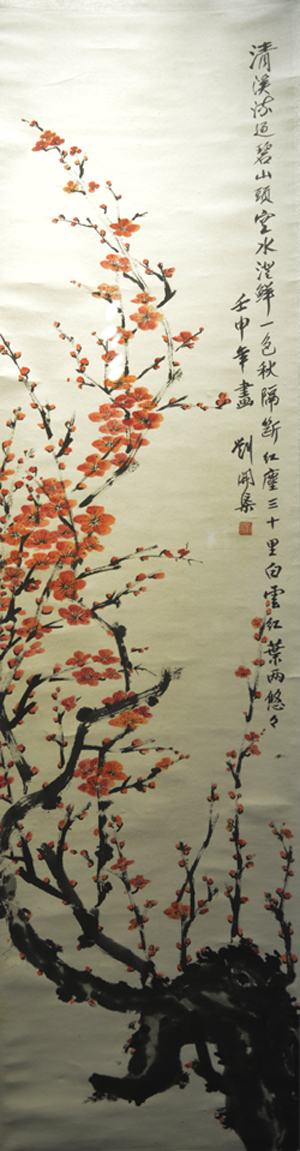 清溪流过碧山頭空水澄鮮一色秋隔断红塵三十里白雲红葉两悠々
壬申年畫
劉開集